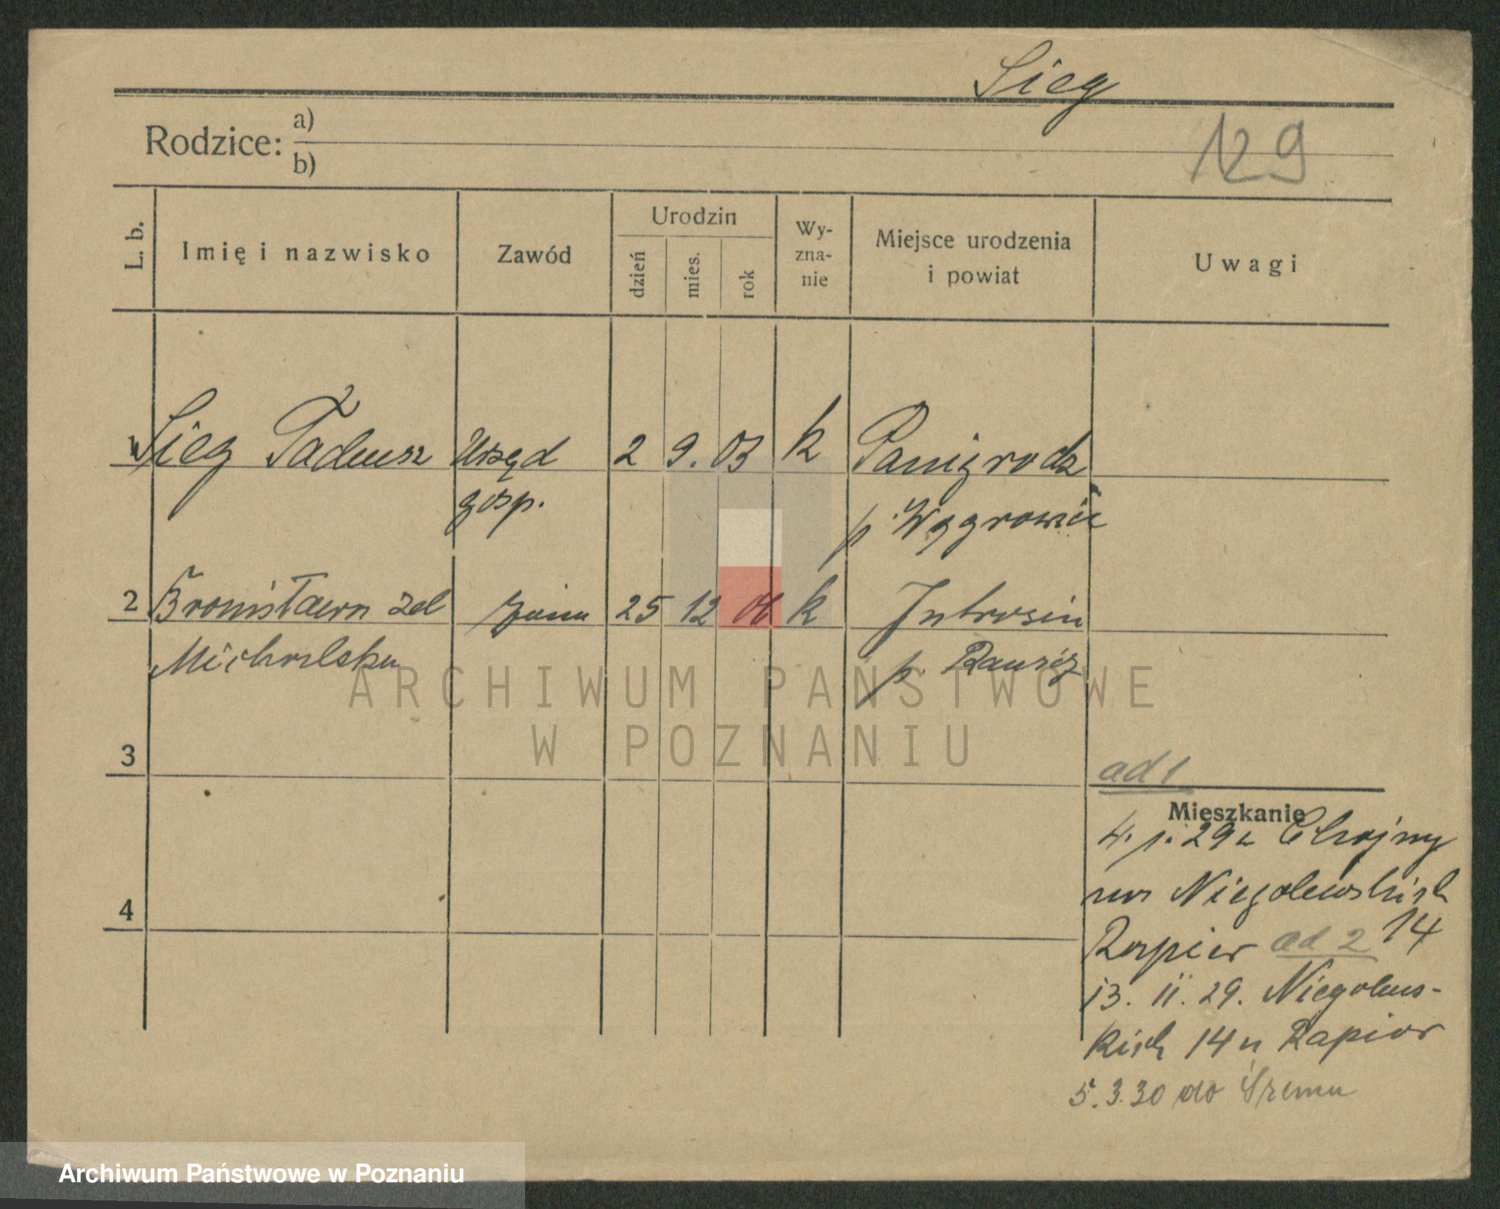 Sieg
Rodzice: a)
b)
129
L. b. Imię i nazwisko Zawód Urodzin dzień mies. rok Wy-zna-nie Miejsce urodzenia i powiat Uwagi
1 Sieg Tadeusz Urzęd 2 9. 03 k Panigrodz
gosp. p. Wągrowiec
2 Bronisława zd żona 25 12 k Jutrosin
Michalska p.
ARCHIWUM PAŃSTWOWE
W POZNANIU
3
ad 1
Mieszkanie
29 z Chojny
Niegolewskich
14
ad 2
13. II. 29. Niegolews-
kich 14 u Rapior
4
5. 3. 30 do Śremu
Archiwum Państwowe w Poznaniu